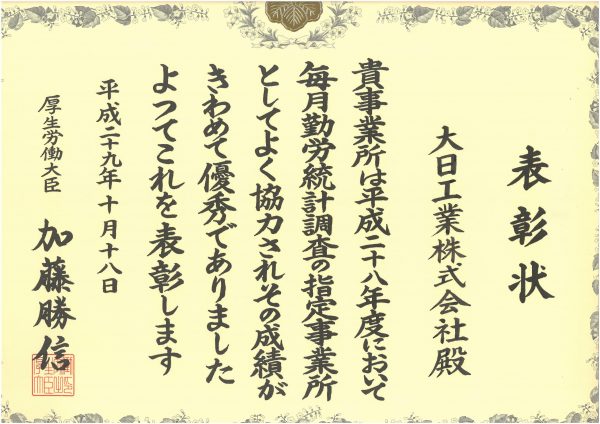 表彰状
大日工業株式会社殿
貴事業所は平成二十八年度において
毎月勤労統計調査の指定事業所
としてよく協力されその成績が
きわめて優秀でありました
よつてこれを表彰します
平成二十九年十月十八日
厚生労働大臣 加藤勝信